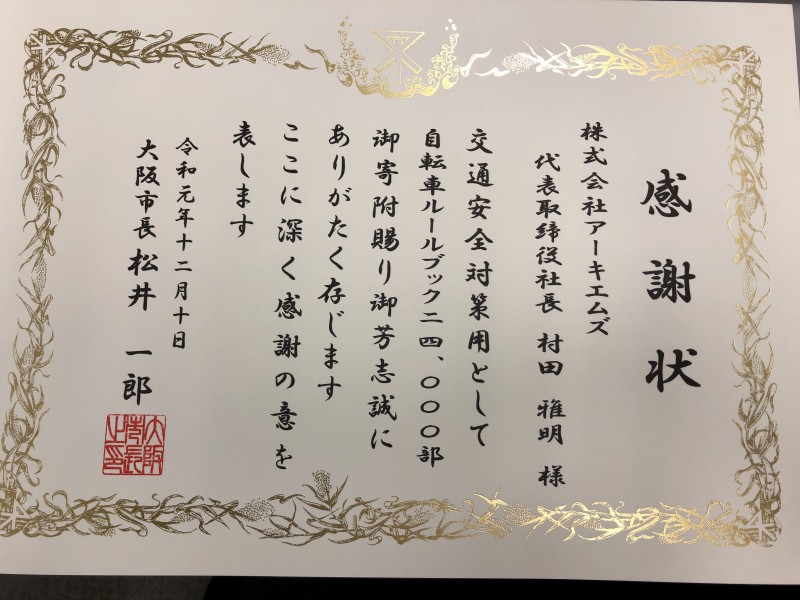 感謝状
株式会社アーキエムズ
代表取締役社長 村田 雅明 様
交通安全対策用として
自転車ルールブック二四、〇〇〇部
御寄附賜り御芳志誠に
ありがたく存じます
ここに深く感謝の意を
表します
令和元年十二月十日
大阪市長 松井 一郎
大阪市長之印